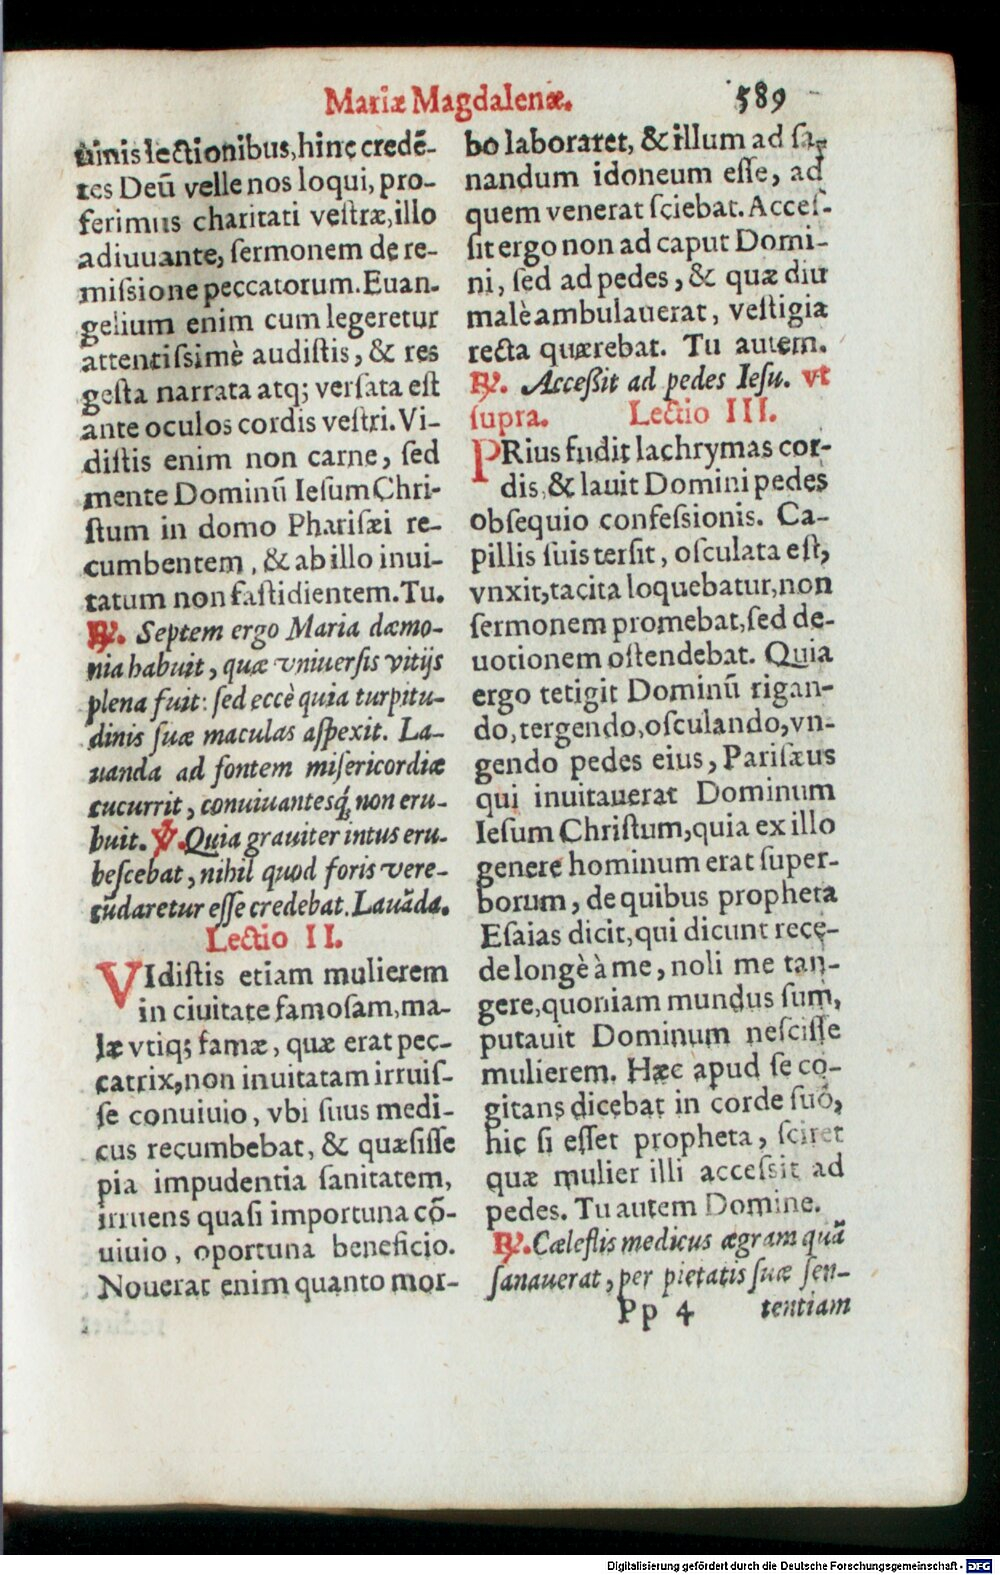 Mariæ Magdalenæ. 589
uinis lectionibus, hinc credē-
tes Deū velle nos loqui, pro-
ferimus charitati vestræ, illo
adiuuante, sermonem de re-
missione peccatorum. Euan-
gelium enim cum legeretur
attentissimè audistis, & res
gesta narrata atq; versata est
ante oculos cordis vestri. Vi-
distis enim non carne, sed
mente Dominū Iesum Chri-
stum in domo Pharisæi re-
cumbentem, & ab illo inui-
tatum non fastidientem. Tu.
℟. Septem ergo Maria dæmo-
nia habuit, quæ vniuersis vitijs
plena fuit: sed eccè quia turpitu-
dinis suæ maculas aspexit. La-
uanda ad fontem misericordiæ
cucurrit, conuiuantesq́; non eru-
buit. ℣. Quia grauiter intus eru-
bescebat, nihil quod foris vere-
cūdaretur esse credebat. Lauāda.
Lectio II.
VIdistis etiam mulierem
in ciuitate famosam, ma-
læ vtiq; famæ, quæ erat pec-
catrix, non inuitatam irruis-
se conuiuio, vbi suus medi-
cus recumbebat, & quæsisse
pia impudentia sanitatem,
irruens quasi importuna cō-
uiuio, oportuna beneficio.
Nouerat enim quanto mor-
bo laboraret, & illum ad sa-
nandum idoneum esse, ad
quem venerat sciebat. Acces-
sit ergo non ad caput Domi-
ni, sed ad pedes, & quæ diu
malè ambulauerat, vestigia
recta quærebat. Tu autem.
℟. Accessit ad pedes Iesu. vt
supra. Lectio III.
PRius fudit lachrymas cor-
dis, & lauit Domini pedes
obsequio confessionis. Ca-
pillis suis tersit, osculata est,
vnxit, tacita loquebatur, non
sermonem promebat, sed de-
uotionem ostendebat. Quia
ergo tetigit Dominū rigan-
do, tergendo, osculando, vn-
gendo pedes eius, Parisæus
qui inuitauerat Dominum
Iesum Christum, quia ex illo
genere hominum erat super-
borum, de quibus propheta
Esaias dicit, qui dicunt rece-
de longè à me, noli me tan-
gere, quoniam mundus sum,
putauit Dominum nescisse
mulierem. Hæc apud se co-
gitans dicebat in corde suo,
hic si esset propheta, sciret
quæ mulier illi accessit ad
pedes. Tu autem Domine.
℟. Cælestis medicus ægram quā
sanauerat, per pietatis suæ sen-
Pp 4 tentiam
Digitalisierung gefördert durch die Deutsche Forschungsgemeinschaft - DFG